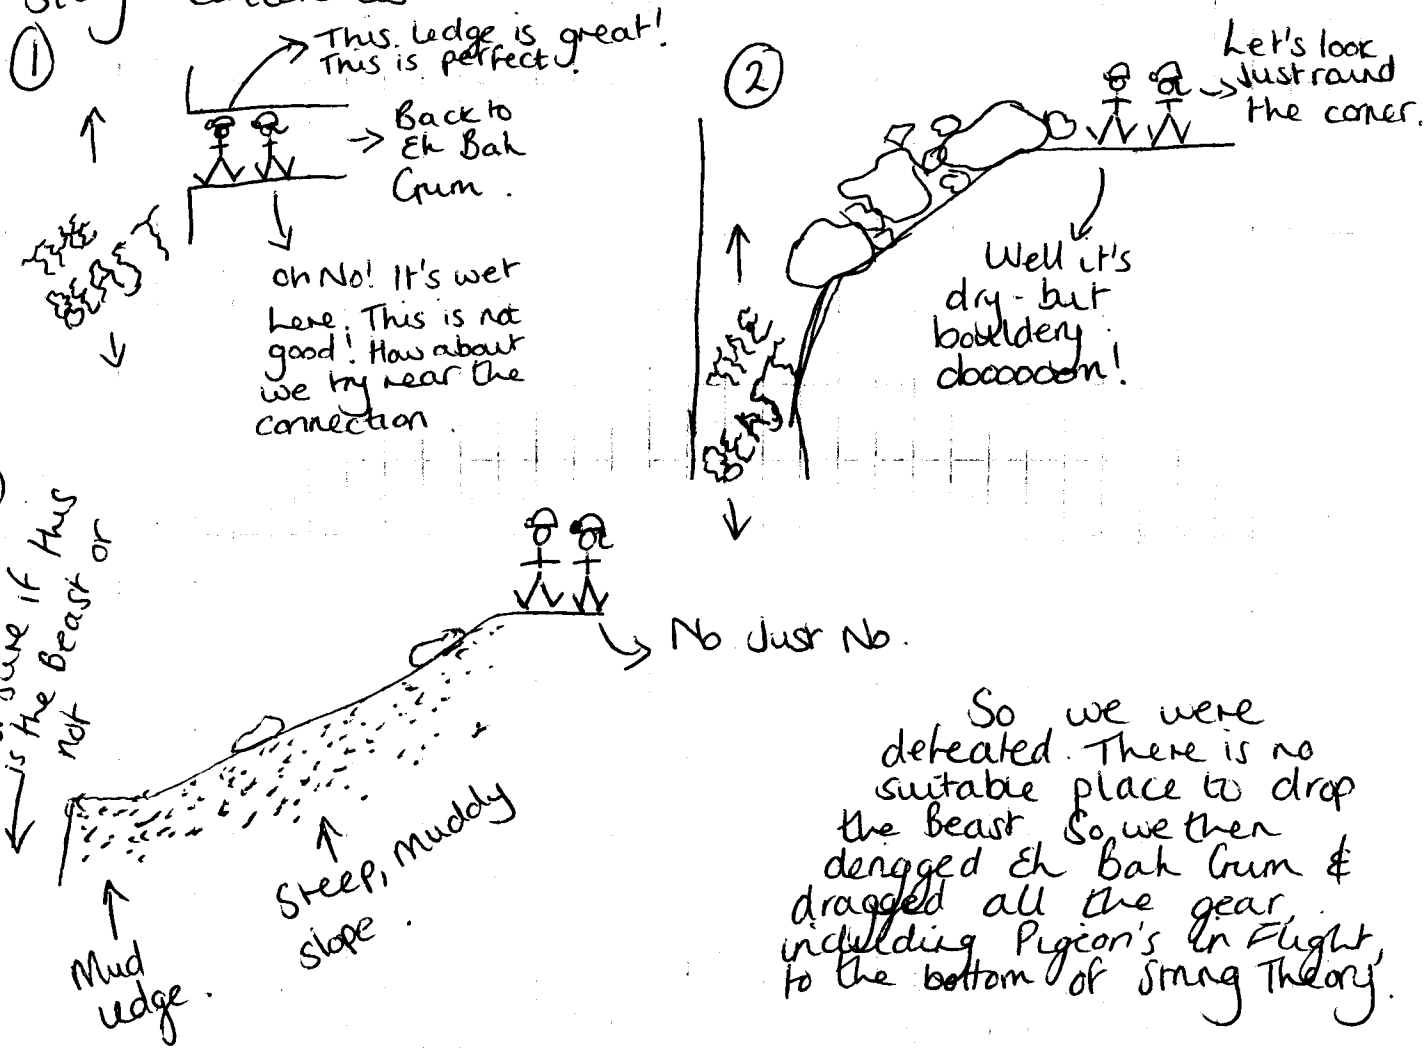 ①
This ledge is great!
This is perfect!
Back to
Eh Bah
Gum.
Oh No! It's wet
here. This is not
good! How about
we try near the
connection.
②
Let's look
just round
the corner.
Well it's
dry - but
bouldery
dooooom!
sure if this
is the Beast or
not
No Just No.
Steep, muddy
slope.
Mud
ledge.
So we were
defeated. There is no
suitable place to drop
the Beast. So we then
derigged Eh Bah Gum &
dragged all the gear,
including Pigeon's in Flight,
to the bottom of String Theory.